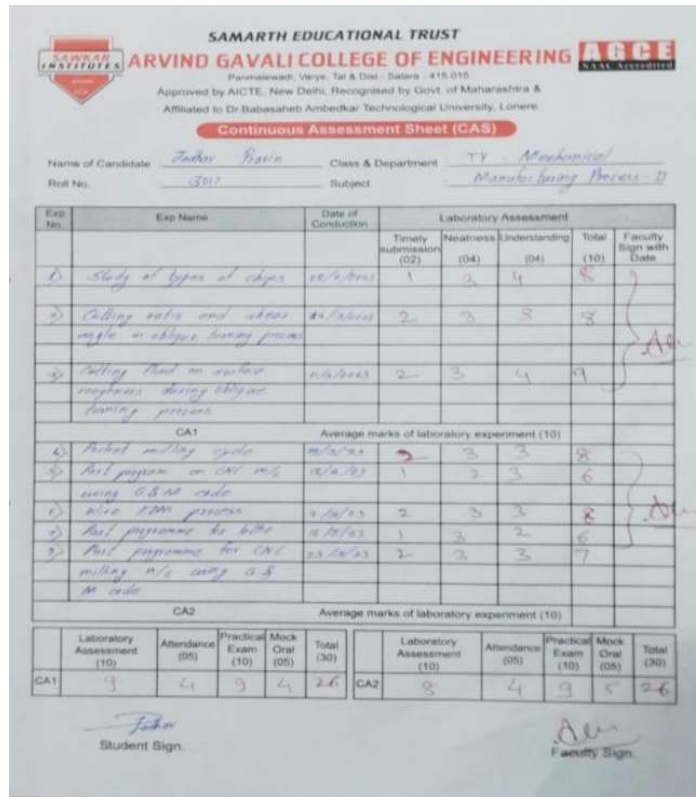 SAMARTH EDUCATIONAL TRUST
SAWKAR INSTITUTES
ARVIND GAVALI COLLEGE OF ENGINEERING
AGCE
NAAC Accredited
Panmalewadi, Varye, Tal & Dist.- Satara - 415 015
Approved by AICTE, New Delhi, Recognised by Govt. of Maharashtra &
Affiliated to Dr.Babasaheb Ambedkar Technological University, Lonere.
Continuous Assessment Sheet (CAS)
Name of Candidate Jadhav Pravin Class & Department TY - Mechanical
Roll No. 3017 Subject Manufacturing Process - II
Exp No. Exp Name Date of Conduction Laboratory Assessment
Timely submission (02) Neatness (04) Understanding (04) Total (10) Faculty Sign with Date
1) Study of types of chips 1 3 4 8
2) Cutting ratio and shear 2 3 3 8
angle in oblique turning process
3) Cutting fluid on surface 2 3 4 9
roughness during oblique
turning process
CA1 Average marks of laboratory experiment (10)
4) milling cycle 2 3 3 8
5) Part program on CNC m/c 1 2 3 6
using G & M code
1) Wire EDM process 2 3 3 8
2) Part programme for lathe 1 3 2 6
3) Part programme for CNC 2 3 3 7
milling m/c using G &
M code
CA2 Average marks of laboratory experiment (10)
Laboratory Assessment (10) Attendance (05) Practical Exam (10) Mock Oral (05) Total (30) Laboratory Assessment (10) Attendance (05) Practical Exam (10) Mock Oral (05) Total (30)
CA1 9 4 9 4 26 CA2 8 4 9 5 26
Jadhav
Student Sign.
Faculty Sign.